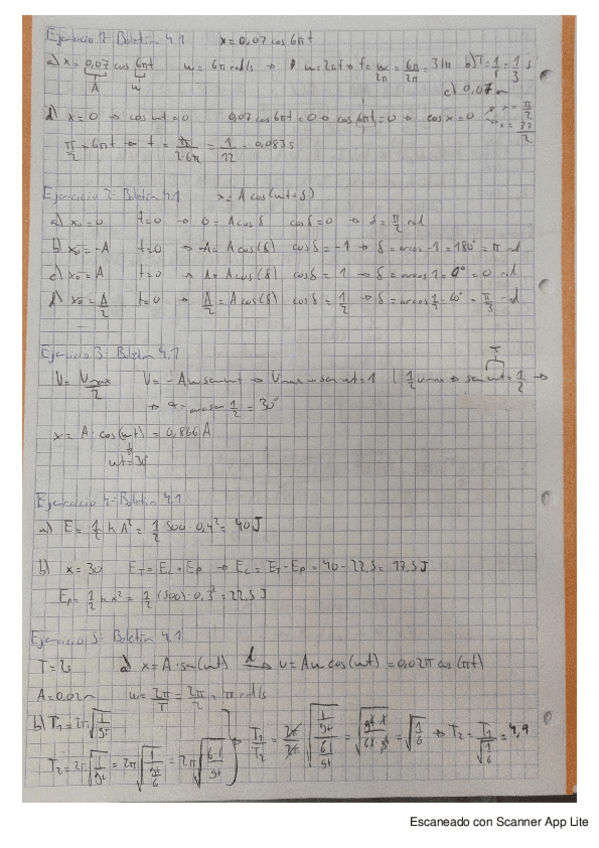 Ejercicio 1: Boletín 4.1 x = 0,07 cos 6πt
a) x = 0,07 cos 6πt w = 6π rad/s → w = 2πf → f = w/2π = 6π/2π = 3 Hz b) T = 1/f = 1/3 s
A w c) 0,07 m
d) x = 0 → cos wt = 0 0,07 cos 6πt = 0 → cos 6πt = 0 → cos x = 0 x = π/2 x = 3π/2
π/2 = 6πt → t = π/2·6π = 1/12 = 0,083 s
Ejercicio 2: Boletín 4.1 x = A cos(wt + δ)
a) x0 = 0 t = 0 → 0 = A cos δ cos δ = 0 → δ = π/2 rad
b) x0 = -A t = 0 → -A = A cos(δ) cos δ = -1 → δ = arcos -1 = 180° = π rad
c) x0 = A t = 0 → A = A cos(δ) cos δ = 1 → δ = arcos 1 = 0° = 0 rad
d) x0 = A/2 t = 0 → A/2 = A cos(δ) cos δ = 1/2 → δ = arcos 1/2 = 60° = π/3 rad
Ejercicio 3: Boletín 4.1
V = Vmax/2 V = -Aw sen wt → Vmax → sen wt = 1 | 1/2 Vmax → sen wt = 1/2 →
→ α = arcsen 1/2 = 30°
x = A · cos(wt) = 0,866 A
wt = 30
Ejercicio 4: Boletín 4.1
a) E = 1/2 k A² = 1/2 500 · 0,4² = 40 J
b) x = 30 ET = Ec + Ep → Ec = ET - Ep = 40 - 22,5 = 17,5 J
Ep = 1/2 k x² = 1/2 (500) · 0,3² = 22,5 J
Ejercicio 5: Boletín 4.1
T = 2s a) x = A · sen(wt) d→ v = Aw cos(wt) = 0,02π cos(πt)
A = 0.02m w = 2π/T = 2π/2 = π rad/s
b) T1 = 2π√(l/gt)
= √(1/6) → T2 = T1/√(1/6) = 4,9
Escaneado con Scanner App Lite